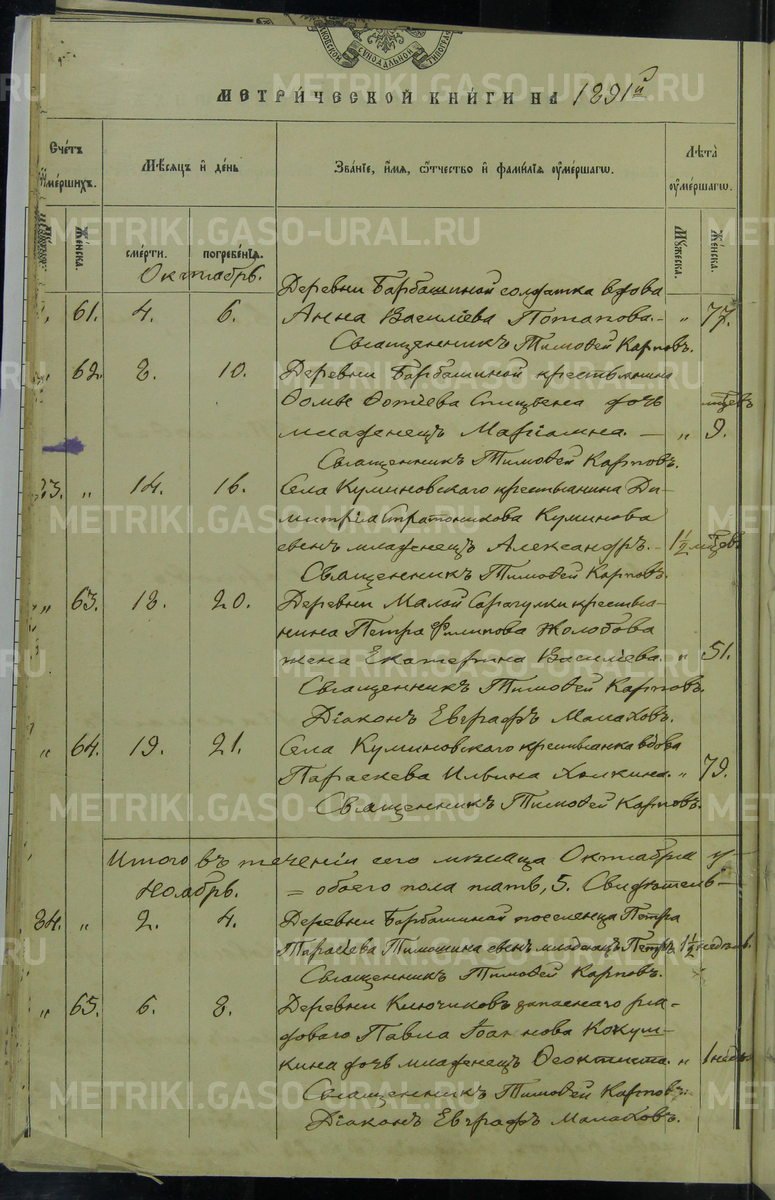 МЕТРИ́ЧЕСКОЙ КНИ́ГИ НА 1891й
Сче́тъ ᲂу҆ме́ршихъ.
Мѣ́сяцъ и҆ де́нь
Зва́нїе, и҆́мя, ѻ҆́тчество и҆ фами́лїя ᲂу҆ме́ршагѡ.
Лѣ́та ᲂу҆ме́ршагѡ.
Же́нска.
сме́рти.
погребе́нїя.
Му́жеска.
Же́нска.
Октябрь.
Деревни Барбашиной солдатка вдова
61. 4. 6. Анна Василіева Потапова. — „ 77.
Священникъ Тимоѳей Карповъ.
62. 8. 10. Деревни Барбашиной крестьянина
Ѳомы Ѳотіева дочь мцевъ
младенецъ Маріамна. — „ 9.
Священникъ Тимоѳей Карповъ.
33. „ 14. 16. Села Куминовскаго крестьянина Ди-
митрія Стратоникова Куминова
сынъ младенецъ Александръ. — 1½ мцевъ
Священникъ Тимоѳей Карповъ.
„ 63. 18. 20. Деревни Малой Сарагулки крестья-
нина Петра Филипова Жолобова
жена Екатерина Василіева. „ 51.
Священникъ Тимоѳей Карповъ.
Діаконъ Евграфъ Малаховъ.
„ 64. 19. 21. Села Куминовскаго крестьянка вдова
Параскева Ильина Холкина. „ 79.
Священникъ Тимоѳей Карповъ.
Итого въ теченіи сего мѣсяца Октября у-
Ноябрь. = обоего пола пять, 5. Свидѣтель-
34. „ 2. 4. Деревни Барбашиной поселенца Петра
Тарасіева Тимошина сынъ младенецъ Петръ 1½ недѣль.
Священникъ Тимоѳей Карповъ.
„ 65. 6. 8. Деревни Ключиковъ запаснаго ря-
доваго Павла Іоаннова Кокуш-
кина дочь младенецъ Ѳеоктиста. „ 1 нед.
Священникъ Тимоѳей Карповъ.
Діаконъ Евграфъ Малаховъ.
METRIKI.GASO-URAL.RU